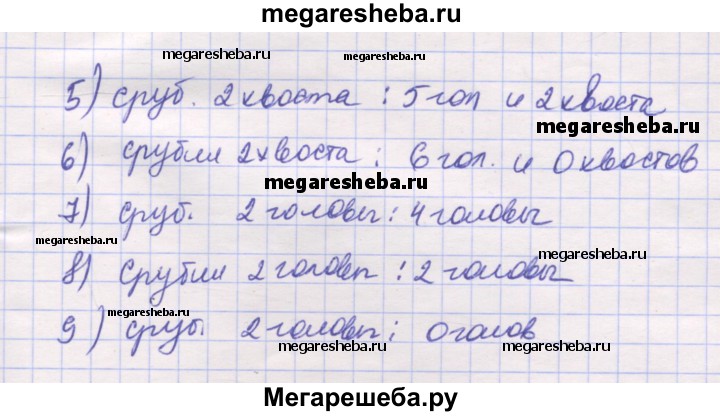 megaresheba.ru
megaresheba.ru megaresheba.ru
5) сруб. 2 хвоста : 5 гол и 2 хвоста
megaresheba.ru
6) срубил 2 хвоста : 6 гол. и 0 хвостов
megaresheba.ru
7) сруб. 2 головы : 4 головы
megaresheba.ru megaresheba.ru
8) срубил 2 головы : 2 головы
megaresheba.ru
9) сруб. 2 головы : 0 голов
megaresheba.ru megaresheba.ru
Мегарешеба.ру